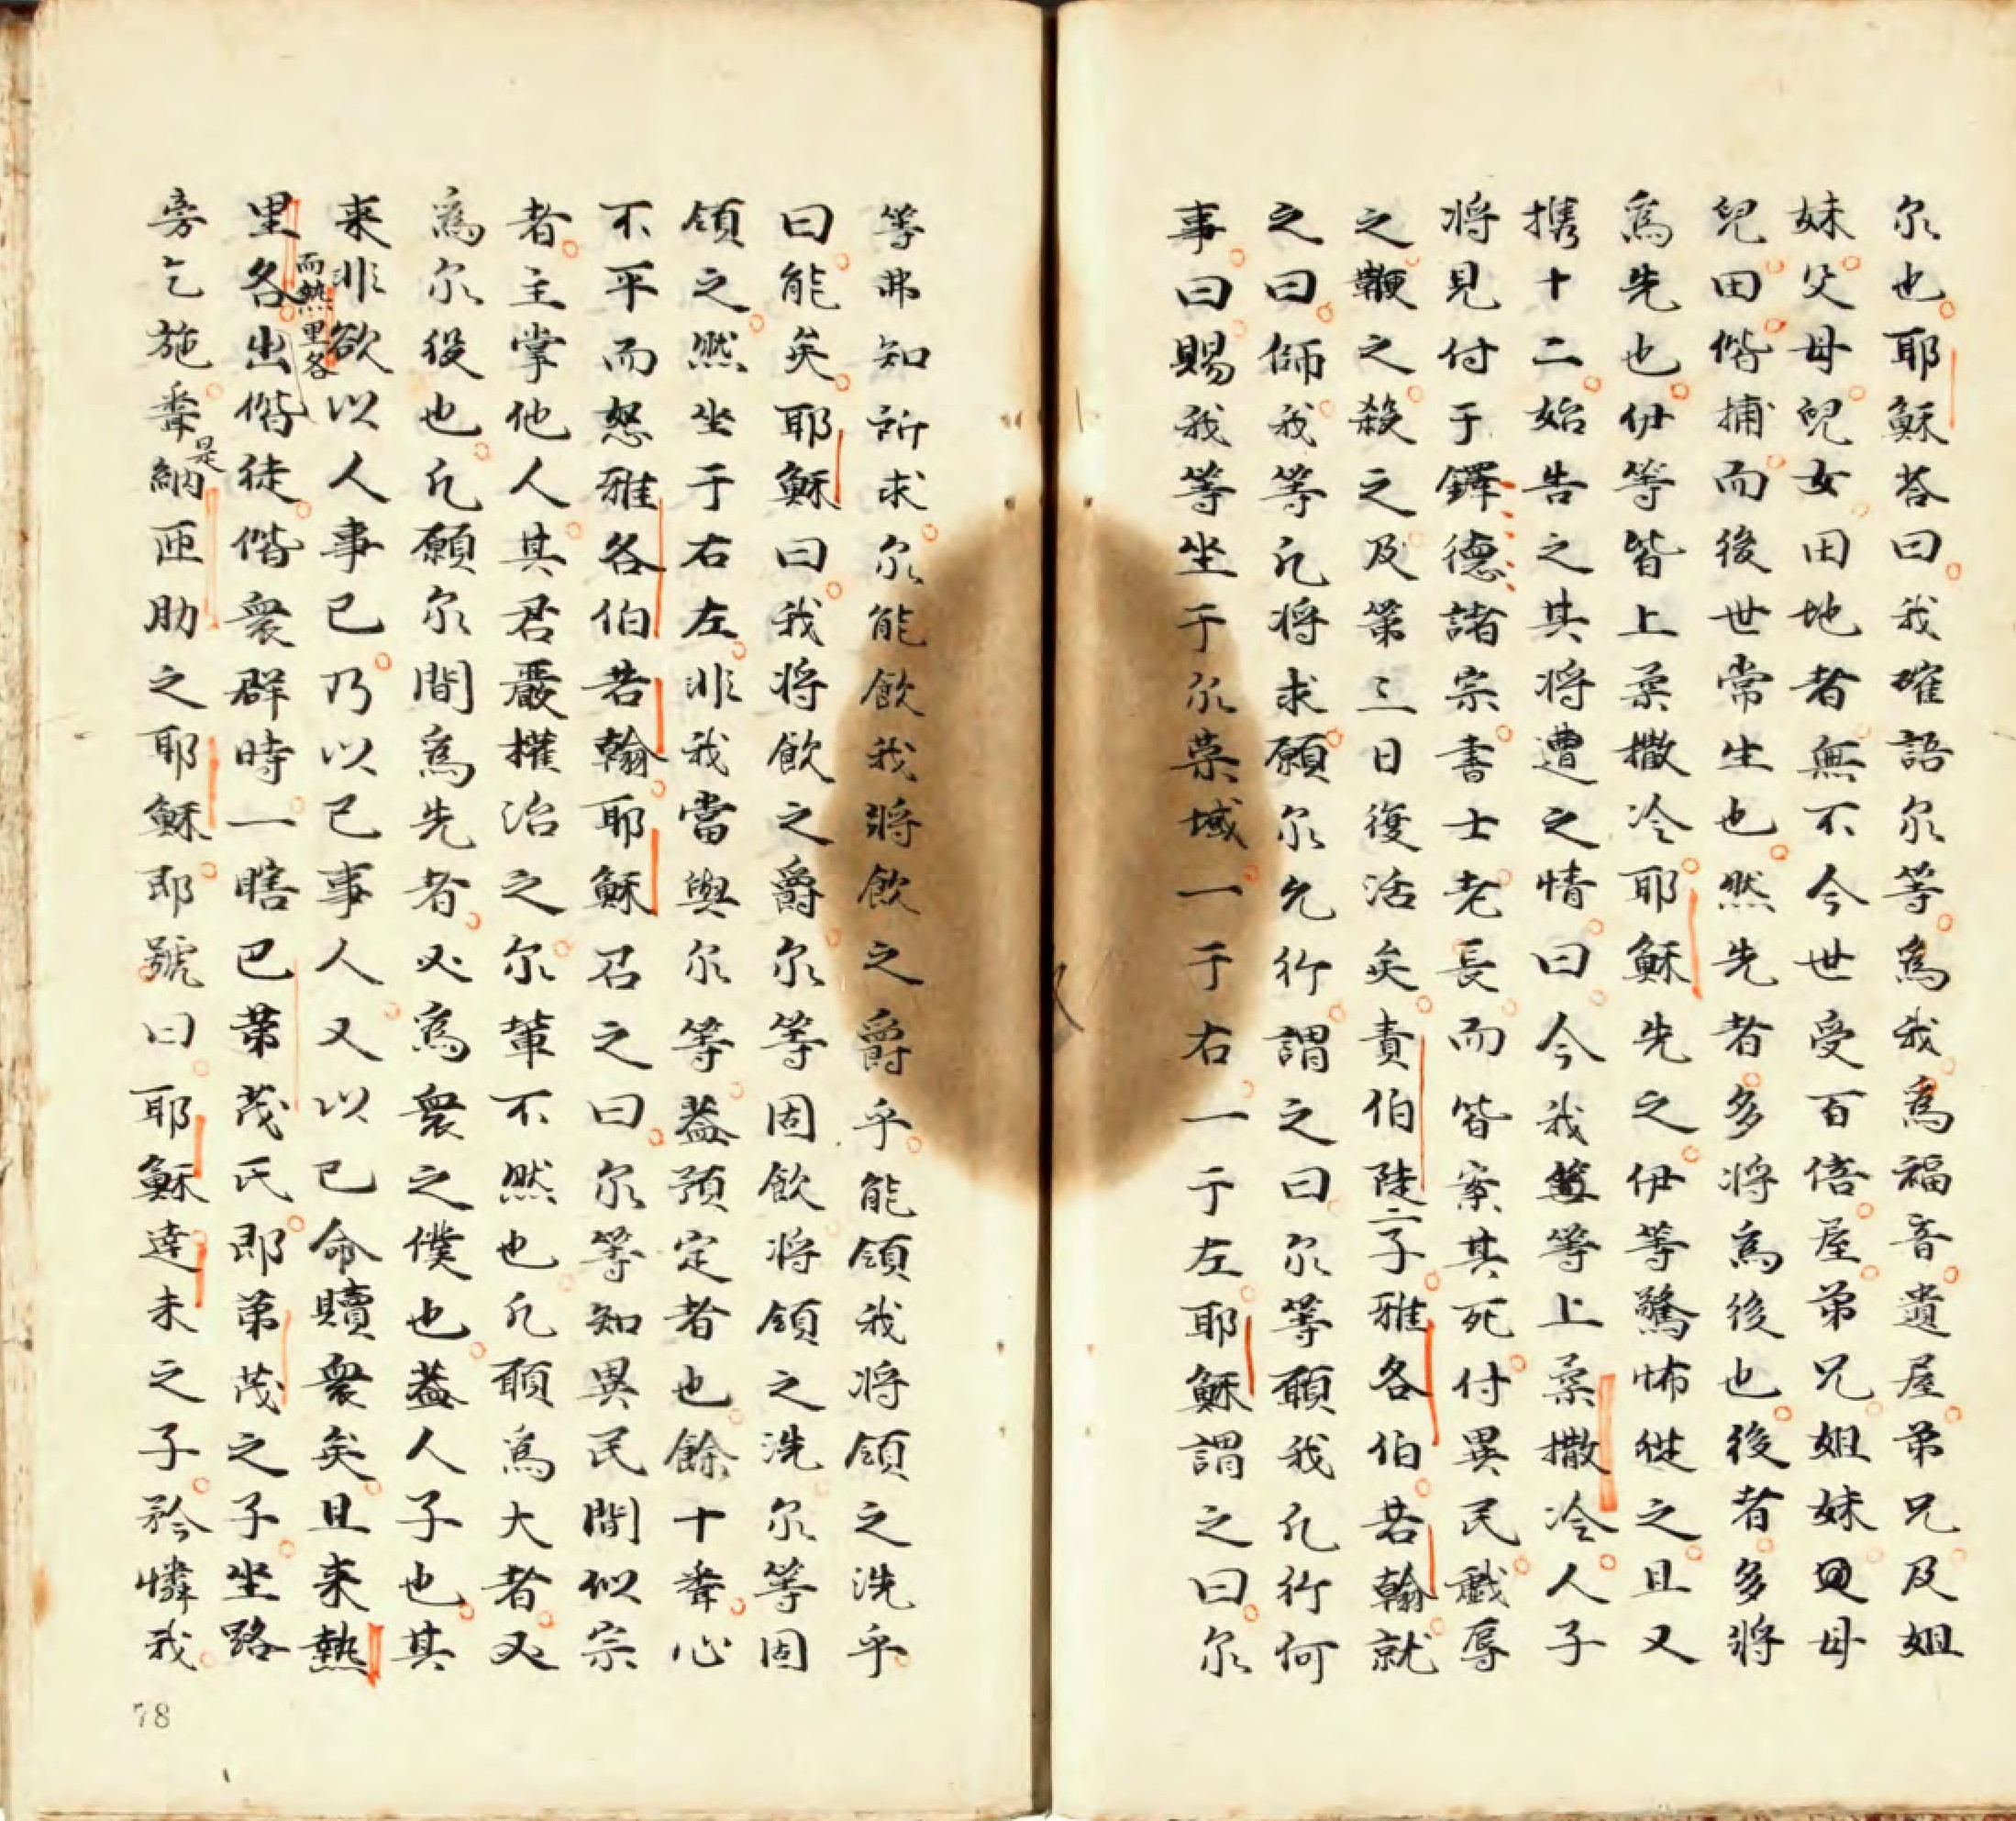 尔也耶穌荅曰我確語尔等為我為福音遺屋弟兄及姐
妹父母兒女田地者無不今世受百倍屋弟兄姐妹母
兒田偕捕而後世常生也然先者多將為後也後者多將
為先也伊等皆上柔撒冷耶穌先之伊等驚怖從之且又
携十二始告之其將遭之情曰今我等上柔撒冷人子
將見付于鐸德諸宗書士老長而皆案其死付異民戲辱
之鞭之殺之及第三日復活矣責伯陡二子雅各伯若翰就
之曰師我等凢將求願尔允行謂之曰尔等願我凢行何
事曰賜我等坐于尔榮域一于右一于左耶穌謂之曰尔
等弗知所求尔能飲我將飲之爵乎能領我將領之洗乎
曰能矣耶穌曰我將飲之爵尔等固飲將領之洗尔等固
領之然坐于右左非我當與尔等蓋預定者也餘十輩心
不平而怒雅各伯若翰耶穌召之曰尔等知異民間似宗
者主掌他人其君嚴權治之尔輩不然也凢願為大者必
為尔役也凢願尔間為先者必為衆之僕也蓋人子也其
来非欲以人事己乃以己事人又以己命贖衆矣且来熱
而熱里各
里各出偕徒偕衆群時一瞎巴第茂氏即第茂之子坐路
旁乞施輩納匝肋之耶穌即號曰耶穌達未之子矜憐我
是
78